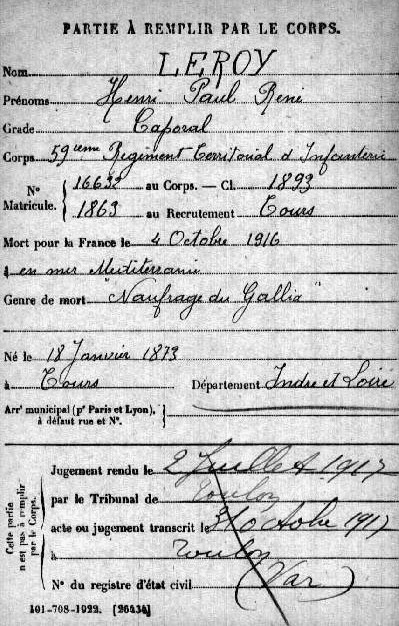 PARTIE À REMPLIR PAR LE CORPS.
Nom LEROY
Prénoms Henri Paul René
Grade Caporal
Corps 59ième Régiment Territorial d'Infanterie
N° Matricule. { 16632 au Corps. — Cl. 1893
1863 au Recrutement Tours
Mort pour la France le 4 Octobre 1916
à en mer Méditerranée
Genre de mort "Naufrage du Gallia"
Né le 18 Janvier 1873
à Tours Département Indre et Loire
Arr' municipal (p' Paris et Lyon),
à défaut rue et N°.
Cette partie n'est pas à remplir par le Corps.
Jugement rendu le 2 Juillet 1917
par le Tribunal de Toulon
acte ou jugement transcrit le 31 Octobre 1917
à Toulon
N° du registre d'état civil (Var)
101-708-1922. [26434]